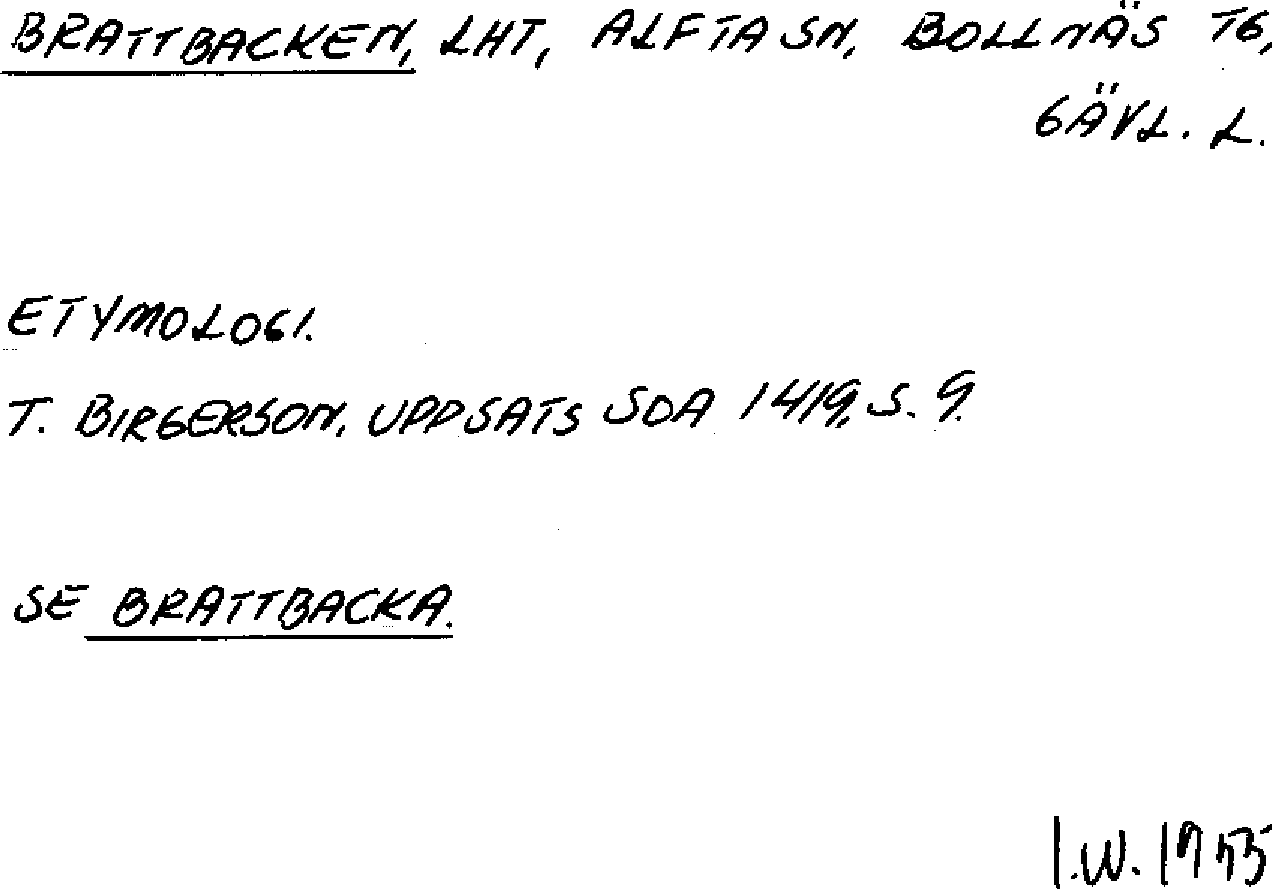 BRATTBACKEN, LHT, ALFTA SN, BOLLNÄS TG,
GÄVL. L.
ETYMOLOGI.
T. BIRGERSON, UPPSATS SOA 1419, S. 9.
SE BRATTBACKA.
I.W.